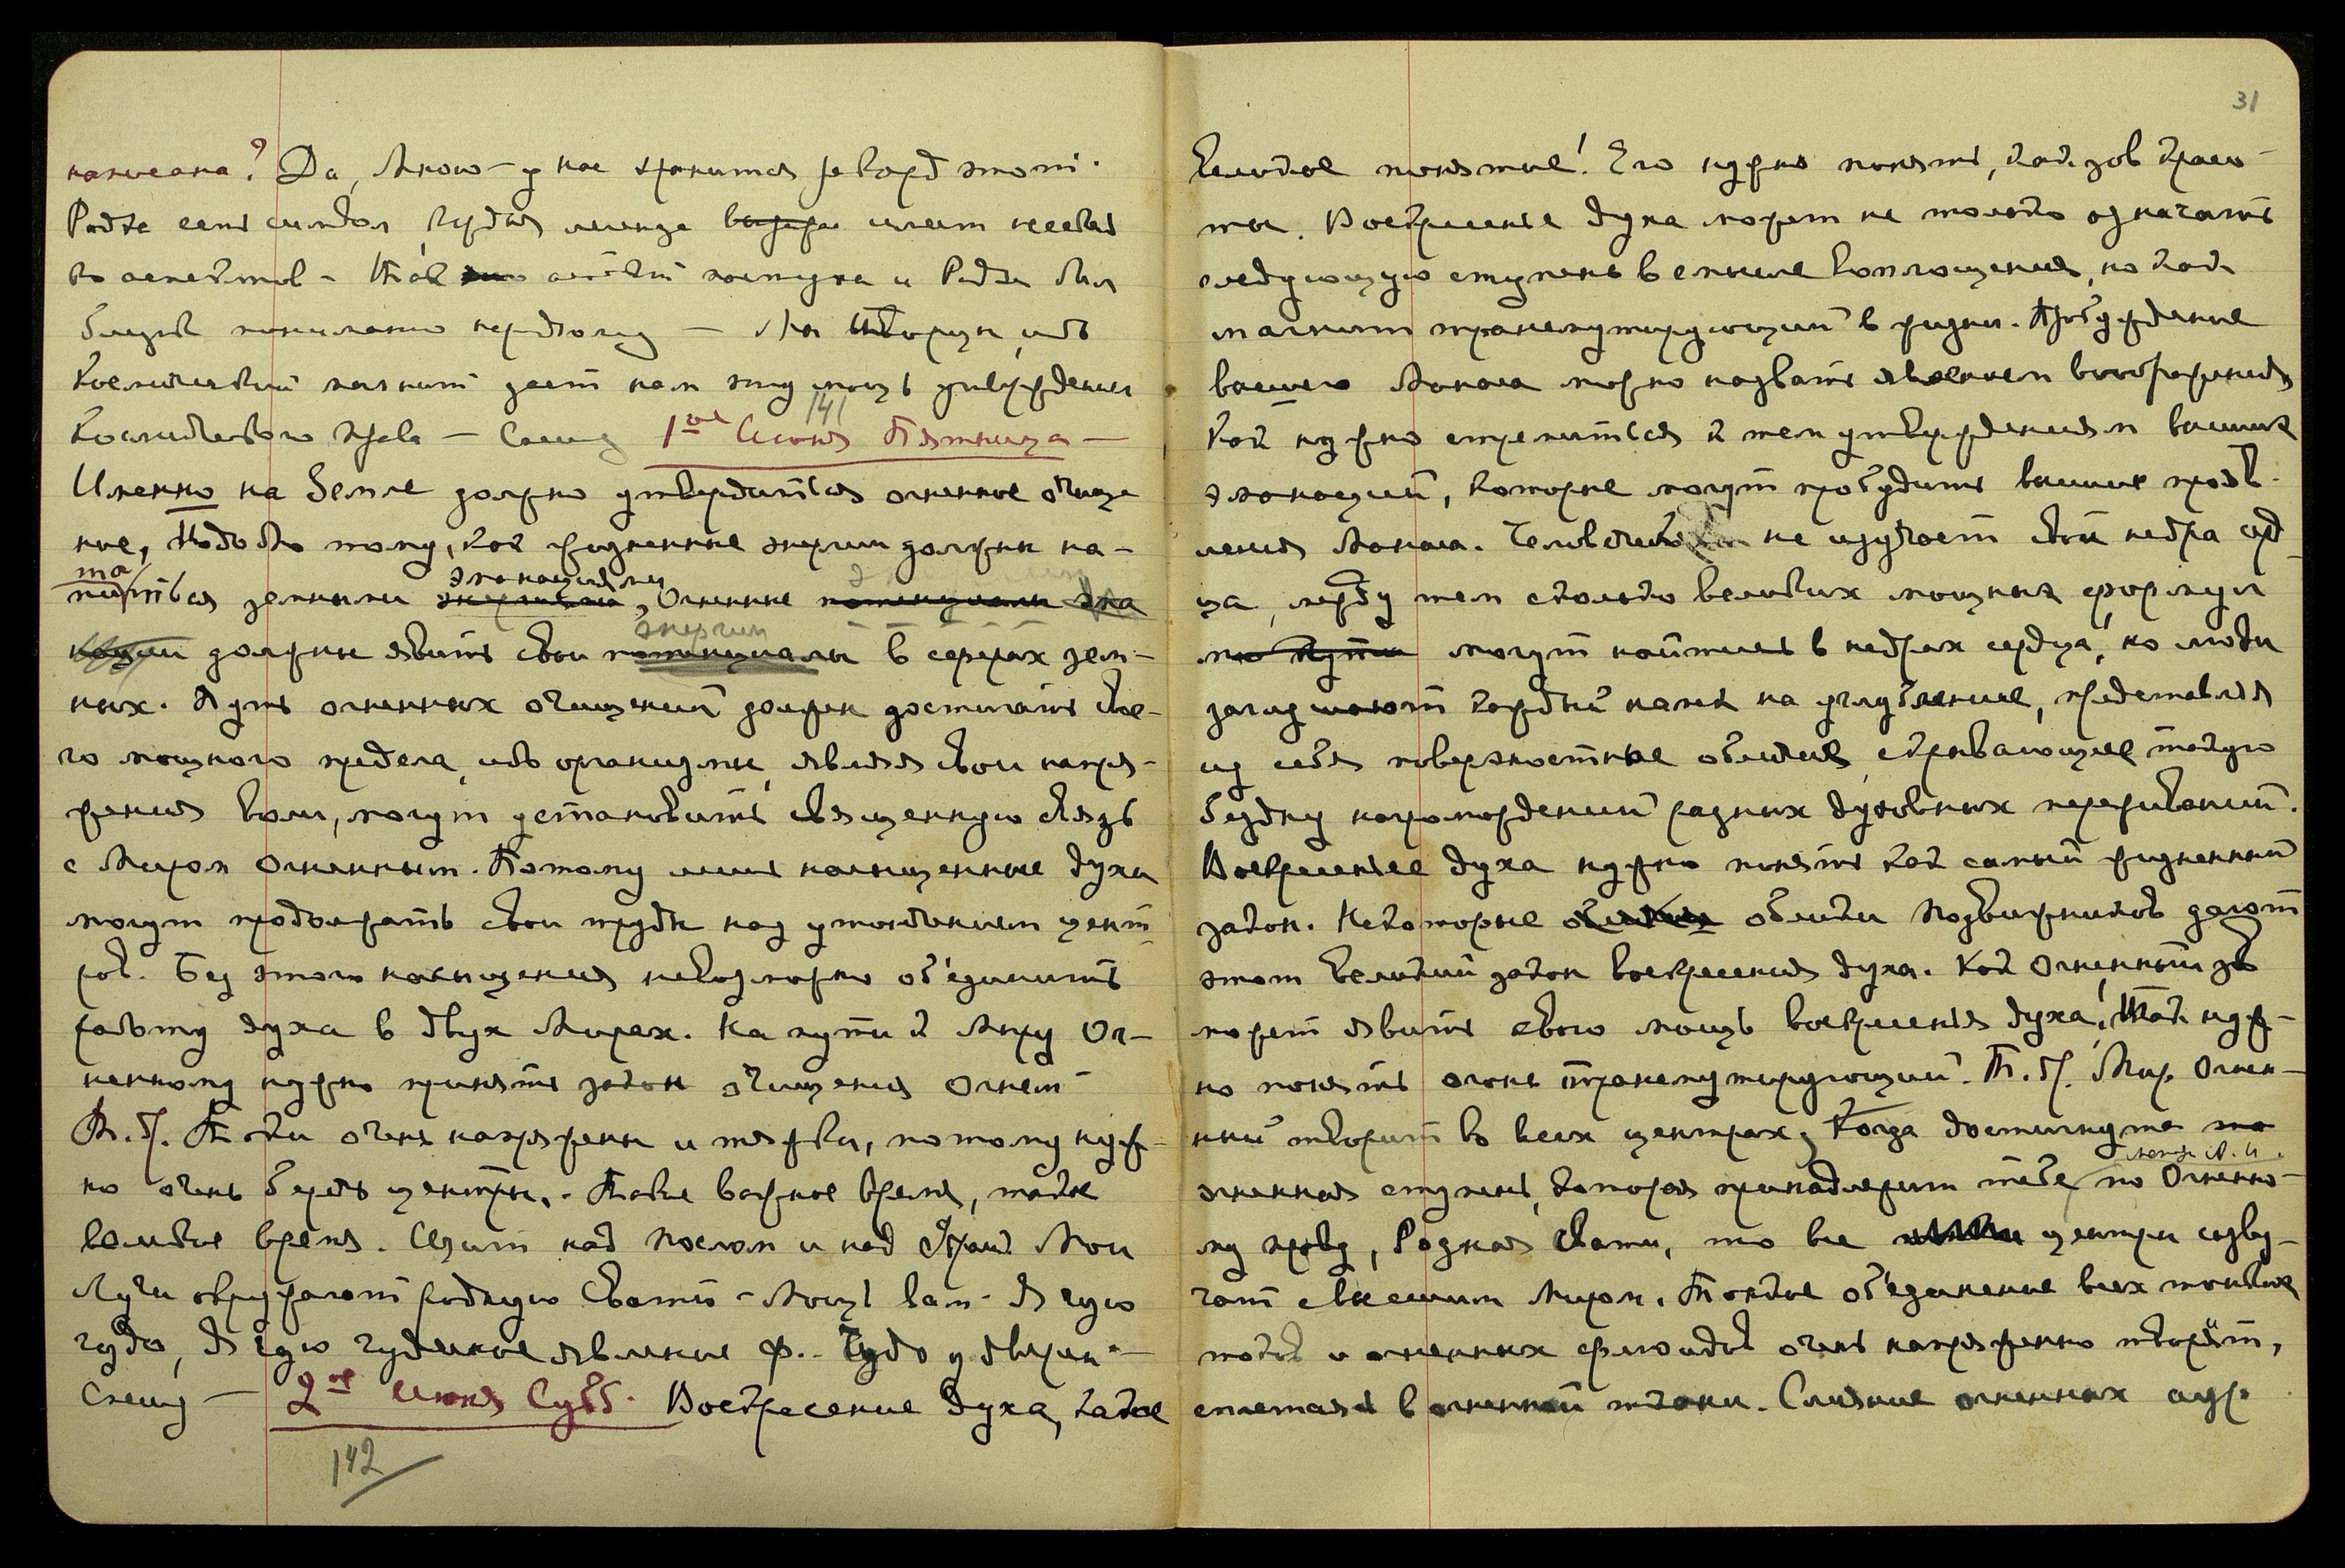 написана? Да, Мною – у нас хранится рекорд этот.
Радж есть символ, Будда иногда имел несколько
аспектов – Так поступка и Радж был
ближе пониманию народному – Мы творцы, ибо
Космический магнит дает нам эту мощь утверждения
Космического права – Спешу 1ое Июня Пятница –
141
Именно на Земле должно утвердиться огненное очище
ние, Подобно тому, как жизненные энергии должны на-
питаться земными эманациями, Огненные потенциалы эма
нации должны явить свои энергии в сферах зем-
ных. Путь огненных очищений должен достигать сво-
го мощного предела, ибо организмы, являя свои напря-
жения воли, могут установить священную связь
с Миром Огненным. Потому лишь насыщенные духи
могут продолжать свои труды над утончением цент
ров. Без этого насыщения невозможно об'единить
работу духа в двух Мирах. На пути к Миру Ог-
ненному нужно принять закон очищения Огнем –
П. Т. Токи очень напряжены и тяжки, потому нуж-
но очень беречь центры. Такое важное время, такое
великое время. Щит над Послом и над Удраей Мои
Лучи окружают родную Свати – Мощь вам – Я чую
чудо, Я чую чудесное явление Ф.. Чудо у дверей –
Спешу – 2ое Июня Субб. Воскресение духа, какое
142
31
Великое понятие! Его нужно понять, как зов красо-
ты. Воскресенье духа может не только означать
следующую ступень в смысле воплощения, но как
магнит трансмутирующий в жизни. Пробуждение
высшего Манаса можно назвать явлением воображения
Как нужно стремиться к тем утверждениям высших
эманаций, которые могут пробудить высшие прояв-
ления Манаса. Человечество не изучает свои недра серд
ца, между тем столько великих мощных формул
могут найтись в недрах сердца, но люди
заглушают каждый намек на углубление, представляя
из себя поверхностные обличия, скрывающие такую
бездну нагромождений разных духовных переживаний.
Воскресенье духа нужно понять как самый жизненный
закон. Некоторые облики Подвижников дают
этот великий закон воскресения духа. Как Огненный зов
может явить свою мощь воскресенья духа! Так нуж-
но понять огонь трансмутирующий. П. Т. Мир Огнен-
ный творит во всех центрах, Когда достигнута
огненная ступень, которая принадлежит тебе по Огненно-
му праву, Родная Свати, то все центры созву-
чат с высшим Миром. Тонкое об'единение всех тонких
токов и огненных флюидов очень напряженно творит,
сплетаясь в огненной ткани. Слияние огненных аур